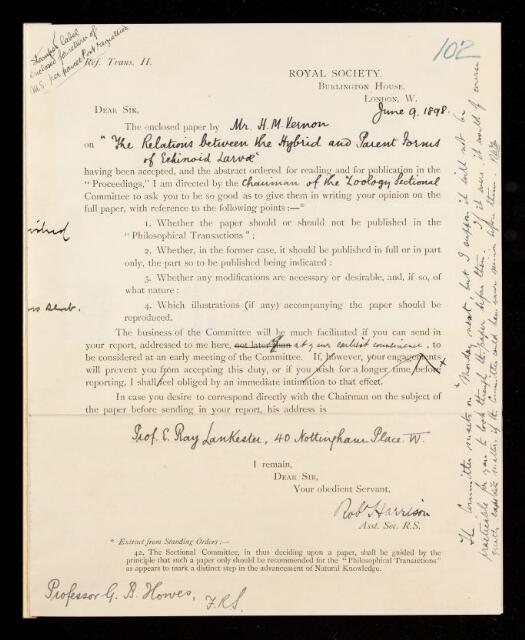 Stamped label
enclosed for return of
M.S. per parcel Post registered
102
Ref. Trans. II.
ROYAL SOCIETY.
BURLINGTON HOUSE,
LONDON, W.
June 9, 1898.
DEAR SIR,
The enclosed paper by Mr. H. M. Vernon
on "The Relations between the Hybrid and Parent Forms
of Echinoid Larvæ"
having been accepted, and the abstract ordered for reading and for publication in the
"Proceedings," I am directed by the Chairman of the Zoology Sectional
Committee to ask you to be so good as to give them in writing your opinion on the
full paper, with reference to the following points :—*
1. Whether the paper should or should not be published in the
"Philosophical Transactions" ;
2. Whether, in the former case, it should be published in full or in part
only, the part so to be published being indicated :
3. Whether any modifications are necessary or desirable, and, if so, of
what nature :
4. Which illustrations (if any) accompanying the paper should be
reproduced.
The business of the Committee will be much facilitated if you can send in
your report, addressed to me here, not later than at your earliest convenience, to
be considered at an early meeting of the Committee. If, however, your engagements
will prevent you from accepting this duty, or if you wish for a longer time before
reporting, I shall feel obliged by an immediate intimation to that effect.
In case you desire to correspond directly with the Chairman on the subject
of the paper before sending in your report, his address is
Prof. E. Ray Lankester, 40 Nottingham Place. W.
I remain,
DEAR SIR,
Your obedient Servant,
Robt Harrison
Asst. Sec. R.S.
* Extract from Standing Orders :—
42. The Sectional Committee, in thus deciding upon a paper, shall be guided by the
principle that such a paper only should be recommended for the "Philosophical Transactions"
as appears to mark a distinct step in the advancement of Natural Knowledge.
Professor G. B. Howes, F.R.S.
The Committee meets on Monday next, but I suppose it will not be
practicable for you to look through the paper before then. If it were it would of course
greatly expedite matters if the Committee could have your opinion before them.